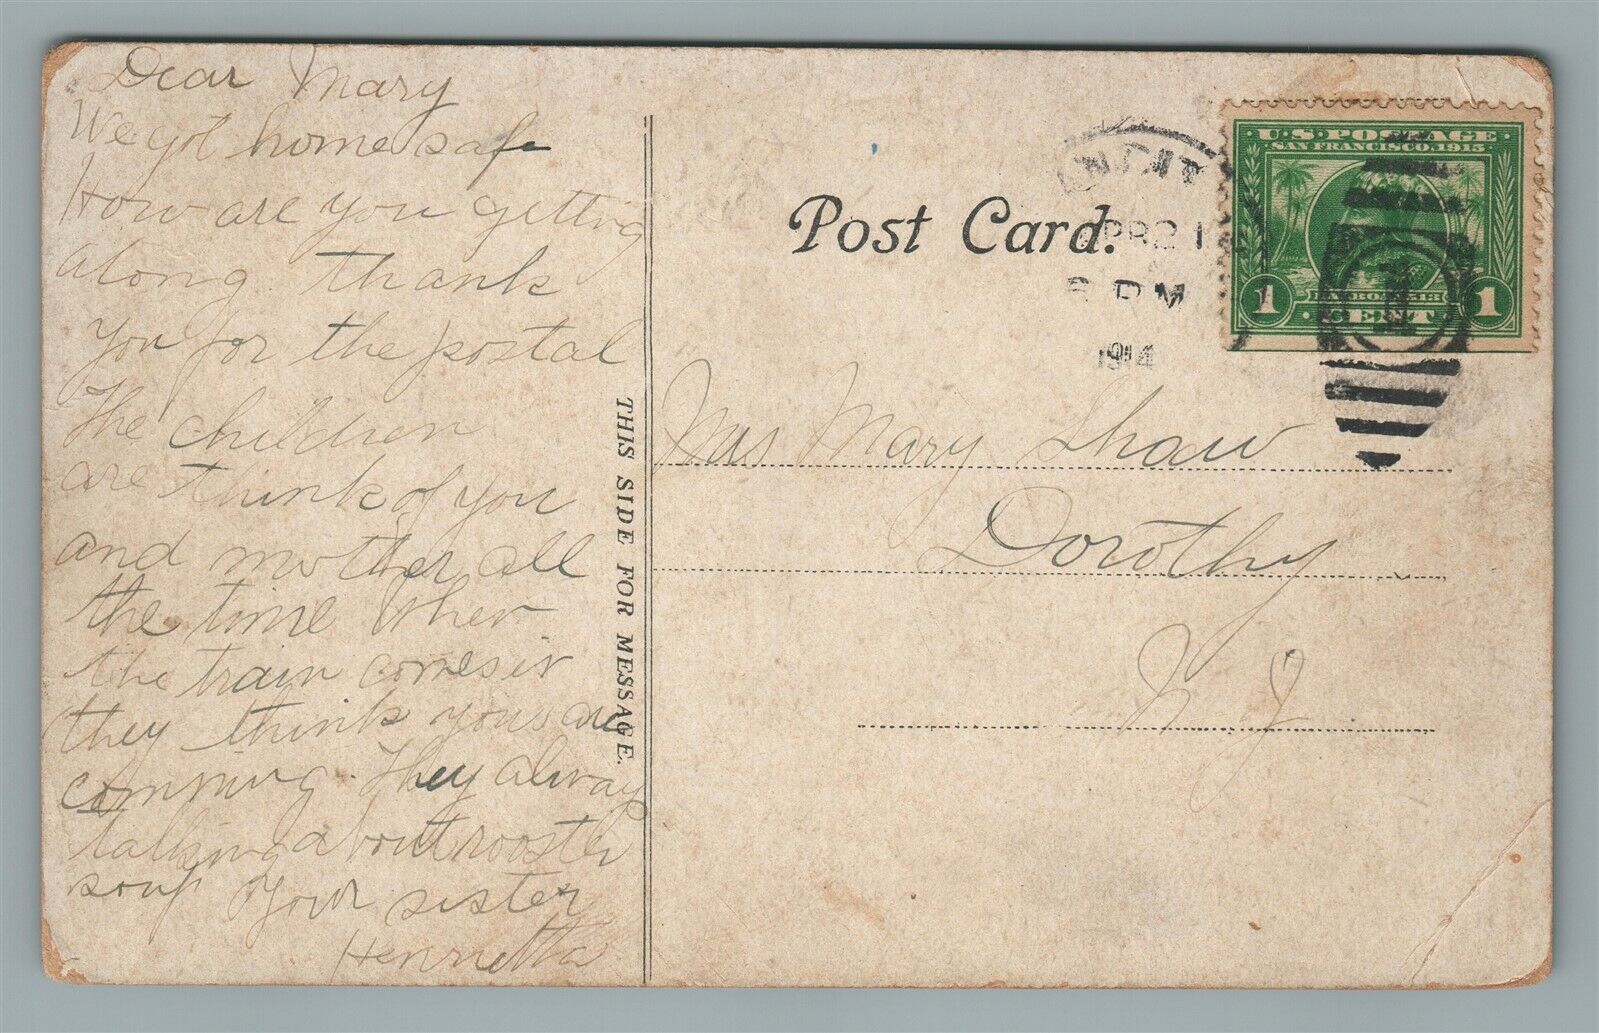 Dear Mary
We got home safe
How are you getting
along. thank
you for the postal
The children
are think of you
and mother all
the time When
the train comes in
they think yous are
comming. They always
talking about rooster
soup Your sister
Henrietta
THIS SIDE FOR MESSAGE.
Post Card.
APR 21
PM
1914
U.S. POSTAGE
SAN FRANCISCO, 1915
1 CENT 1
Mrs Mary Shaw
Dorothy
N J